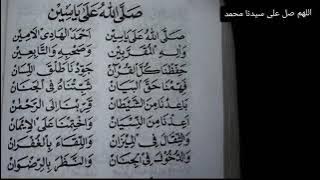 اللهم صل على سيدنا محمد
صَلَّى اللهُ عَلَى يَاسِيْن
صَلَّى اللهُ عَلَى يَاسِيْن اَحْمَدَ الْهَادِى الْاَمِيْن
وَاٰلِهِ الْمُقَرَّبِيْن وَصَحْبِهِ وَالتَّابِعِيْن
حَفِّظْنَا كُلَّ الْقُرْاٰن جَوِّدْنَا طَلْقَ اللِّسَان
فَهِّمْنَا حَقَّ الْبَيَان فِى الْجَنَان
بَاعِدْنَا مِنَ الشَّيْطَان وَقَرِّبْنَا اِلَى الرَّحْمٰن
بَاعِدْنَا مِنَ النِّسْيَان وَاخْتِمْنَا عَلَى الْاِيْمَان
وَالثِّقَالَ فِى الْمِيْزَان وَاللِّقَاءَ بِالْغُفْرَان
وَالدُّخُوْلَ فِى الْجِنَان وَالنَّظَرَ بِالرِّضْوَان